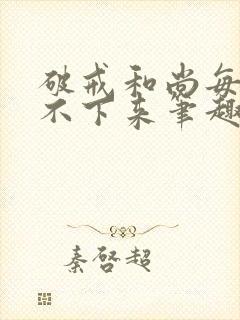 破戒和尚每
不下来笔趣
秦启超